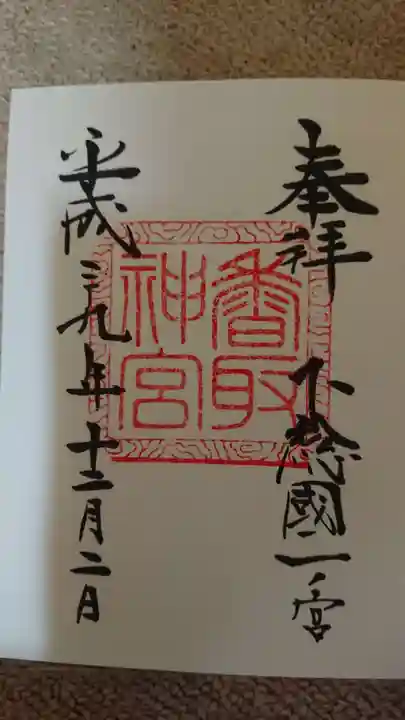 奉拝
下総國一ノ宮
香取
神宮
平成二九年十二月二日